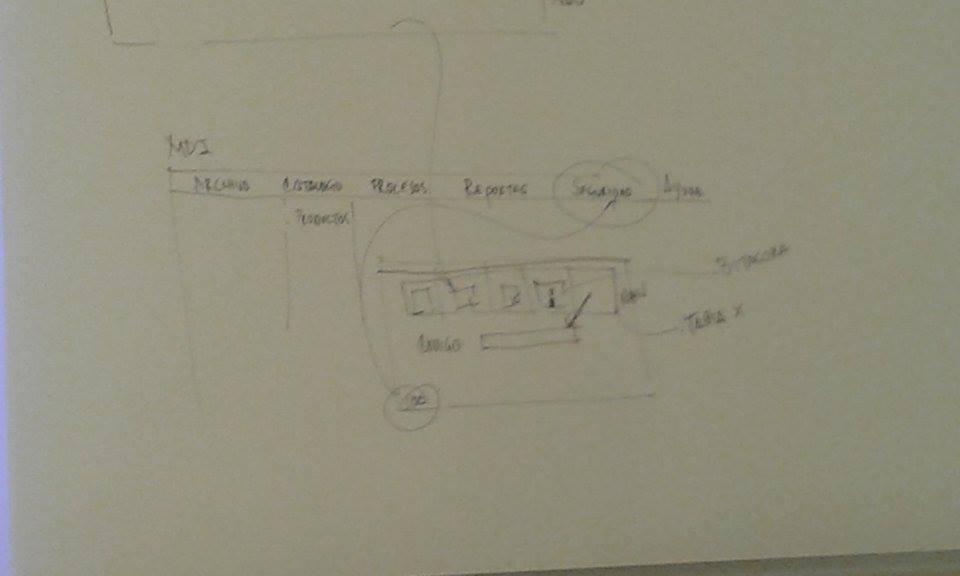 MDI
ARCHIVO CATALOGO PROCESOS REPORTES SEGURIDAD AYUDA
PRODUCTOS
BITACORA
TABLA X
CODIGO